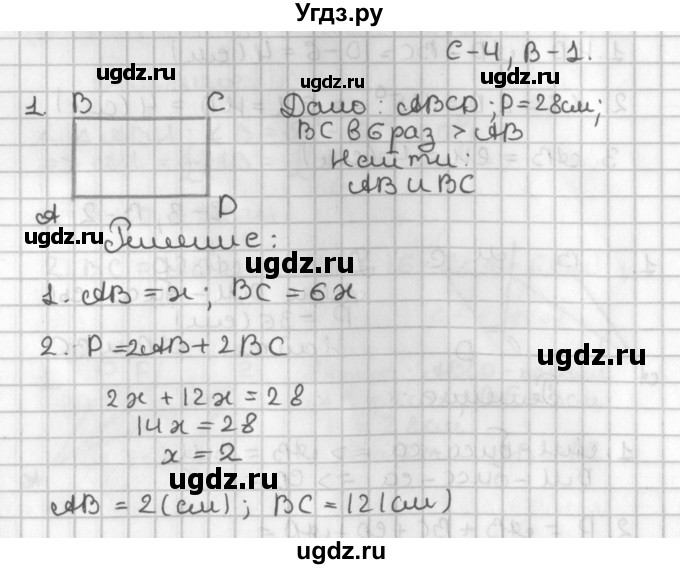 Угдз.ру
С-4, В-1.
ugdz.ru ugdz.ru ugdz.ru
1 B C Дано: ABCD; P=28см;
BC в 6 раз > AB
Найти:
AB и BC
A D
ugdz.ru
Решение:
ugdz.ru
1. AB = x; BC = 6x
2. P = 2AB + 2BC
ugdz.ru
2x + 12x = 28
14x = 28
x = 2
ugdz.ru
AB = 2(см); BC = 12(см)
ugdz.ru
ugdz.ru